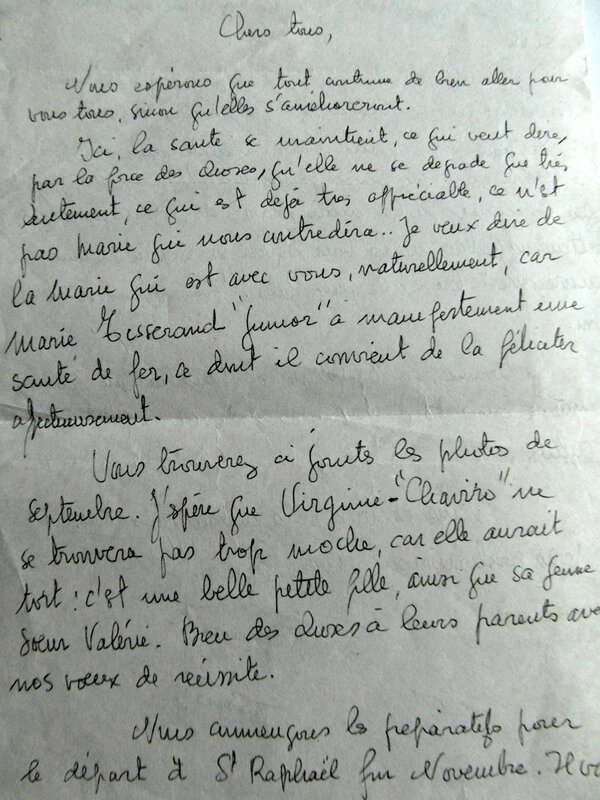 Chers tous,
Nous espérons que tout continue de bien aller pour
vous tous, sinon qu'elles s'amélioreront.
Ici, la santé se maintient, ce qui veut dire,
par la force des choses, qu'elle ne se dégrade que très
lentement, ce qui est déjà très appréciable, ce n'est
pas Marie qui nous contredira.. Je veux dire de
la Marie qui est avec vous, naturellement, car
Marie Tisserand "Junior" a manifestement une
santé de fer, ce dont il convient de la féliciter
affectueusement.
Vous trouverez ci joints les photos de
septembre. J'espère que Virginie-"Chaviro" ne
se trouvera pas trop moche, car elle aurait
tort : c'est une belle petite fille, ainsi que sa jeune
soeur Valérie. Bien des choses à leurs parents ave
nos voeux de réussite.
Nous commençons les préparatifs pour
le départ à St Raphaël fin Novembre.